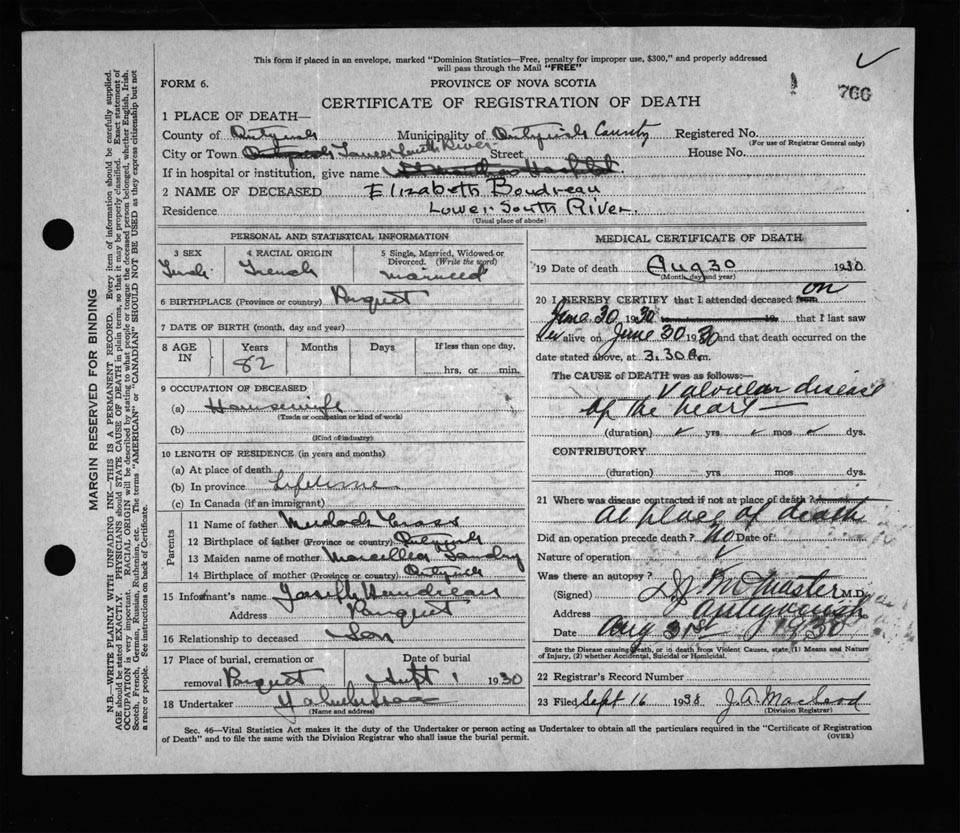 This form if placed in an envelope, marked "Dominion Statistics—Free, penalty for improper use, $300," and properly addressed
will pass through the Mail "FREE"
FORM 6.
PROVINCE OF NOVA SCOTIA
766
CERTIFICATE OF REGISTRATION OF DEATH
1 PLACE OF DEATH—
County of Antigonish Municipality of Antigonish County Registered No.
(For use of Registrar General only)
City or Town Lower South River Street House No.
If in hospital or institution, give name St Martha's Hospital
2 NAME OF DECEASED Elizabeth Boudreau
Residence Lower South River.
(Usual place of abode)
PERSONAL AND STATISTICAL INFORMATION
3 SEX 4 RACIAL ORIGIN 5 Single, Married, Widowed or
Divorced. (Write the word)
French married
6 BIRTHPLACE (Province or country) Pomquet
7 DATE OF BIRTH (month, day and year)
8 AGE IN Years Months Days If less than one day,
82 hrs. or min.
9 OCCUPATION OF DECEASED
(a) Housewife
(Trade or occupation or kind of work)
(b)
(Kind of industry)
10 LENGTH OF RESIDENCE (in years and months)
(a) At place of death
(b) In province Lifetime
(c) In Canada (if an immigrant)
Parents
11 Name of father Murdoch
12 Birthplace of father (Province or country) Antigonish
13 Maiden name of mother Landry
14 Birthplace of mother (Province or country) Antigonish
15 Informant's name Joseph Boudreau
Address Pomquet
16 Relationship to deceased Son
17 Place of burial, cremation or Date of burial
removal Pomquet Sept 1 1930
18 Undertaker
(Name and address)
MEDICAL CERTIFICATE OF DEATH
19 Date of death Aug 30 1930
(Month, day and year)
20 I HEREBY CERTIFY that I attended deceased from on
June 30 1930 19 that I last saw
her alive on June 30 1930 and that death occurred on the
date stated above, at 3.30 a.m.
The CAUSE of DEATH was as follows:—
Valvular disease
of the heart —
(duration) yrs mos dys.
CONTRIBUTORY
(duration) yrs mos dys.
21 Where was disease contracted if not at place of death?
At place of death
Did an operation precede death? No Date of
Nature of operation
Was there an autopsy?
(Signed) M.D.
Address Antigonish
Date Aug 31st 1930
State the Disease causing Death, or in death from Violent Causes, state (1) Means and Nature
of Injury, (2) whether Accidental, Suicidal or Homicidal.
22 Registrar's Record Number
23 Filed Sept 16 1938 J. A. MacLeod
(Division Registrar)
Sec. 46—Vital Statistics Act makes it the duty of the Undertaker or person acting as Undertaker to obtain all the particulars required in the "Certificate of Registration
of Death" and to file the same with the Division Registrar who shall issue the burial permit.
(OVER)
MARGIN RESERVED FOR BINDING
N.B.—WRITE PLAINLY WITH UNFADING INK—THIS IS A PERMANENT RECORD. Every item of information should be carefully supplied.
AGE should be stated EXACTLY. PHYSICIANS should STATE CAUSE OF DEATH in plain terms, so that it may be properly classified. Exact statement of
OCCUPATION is very important. RACIAL ORIGIN will be described by stating to what people or tongue the deceased person belonged, whether English, Irish,
Scotch, French, German, Russian, Ruthenian, etc. The terms "AMERICAN" or "CANADIAN" SHOULD NOT BE USED as they express citizenship but not
a race or people. See instructions on back of Certificate.